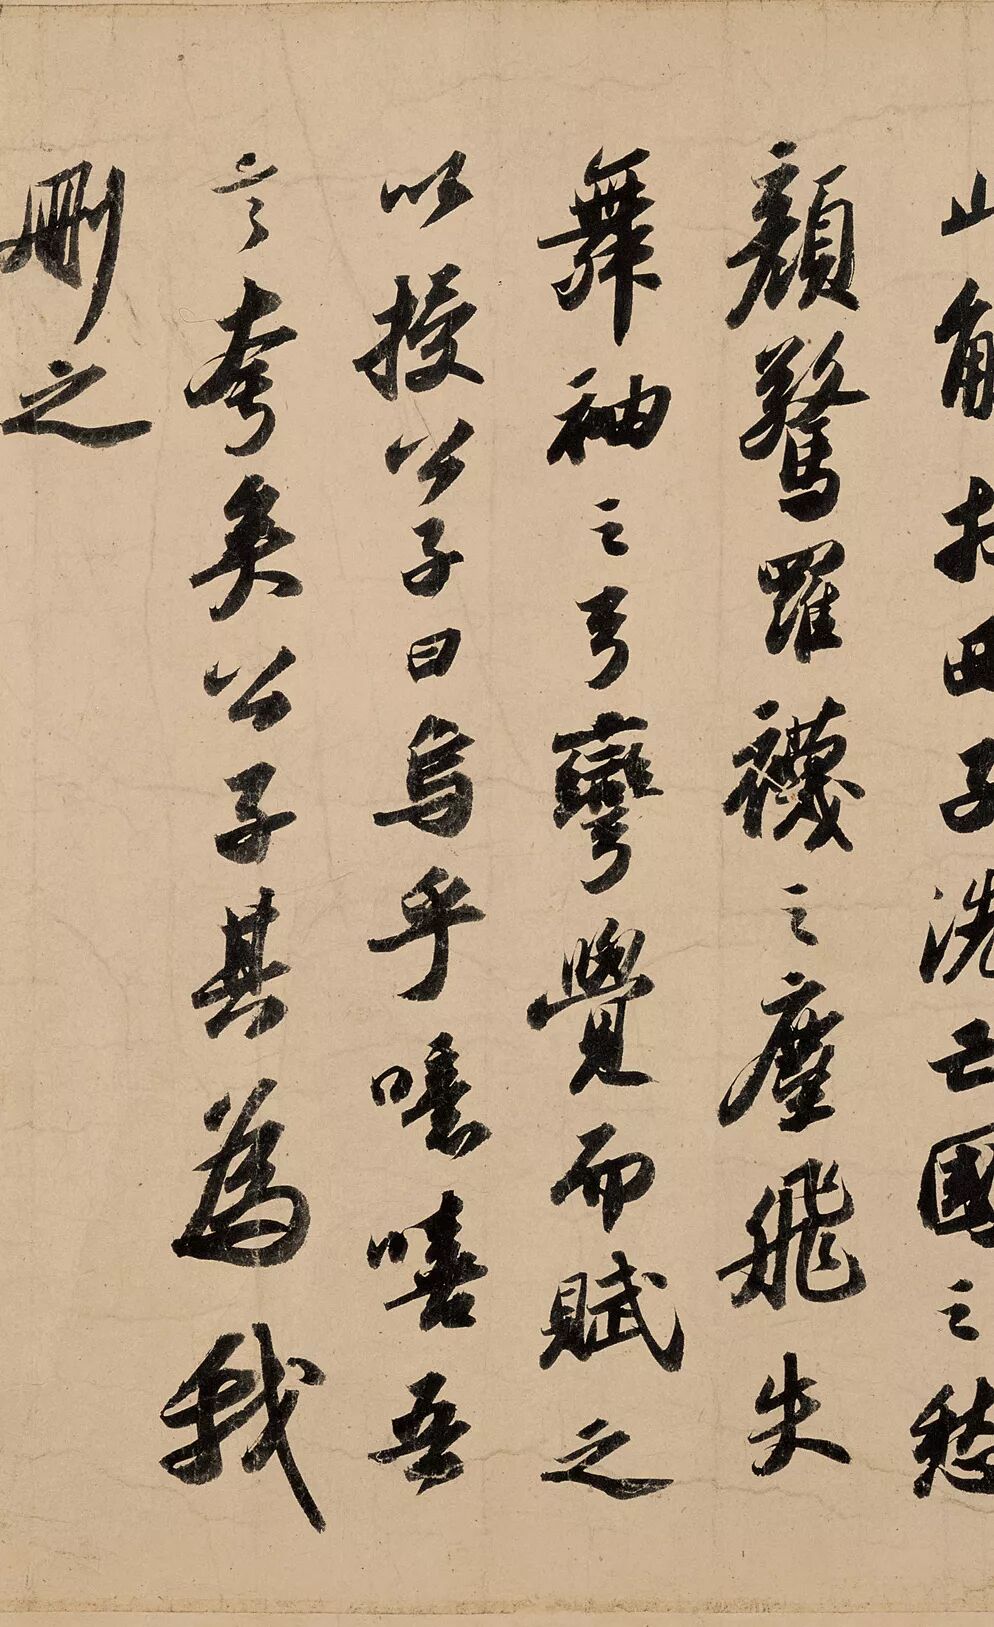 此觴於西子洗亡國之愁
顏驚羅襪之塵飛失
舞袖之弓彎覺而賦之
以授公子曰烏乎噫嘻吾
言夸矣公子其為我
刪之